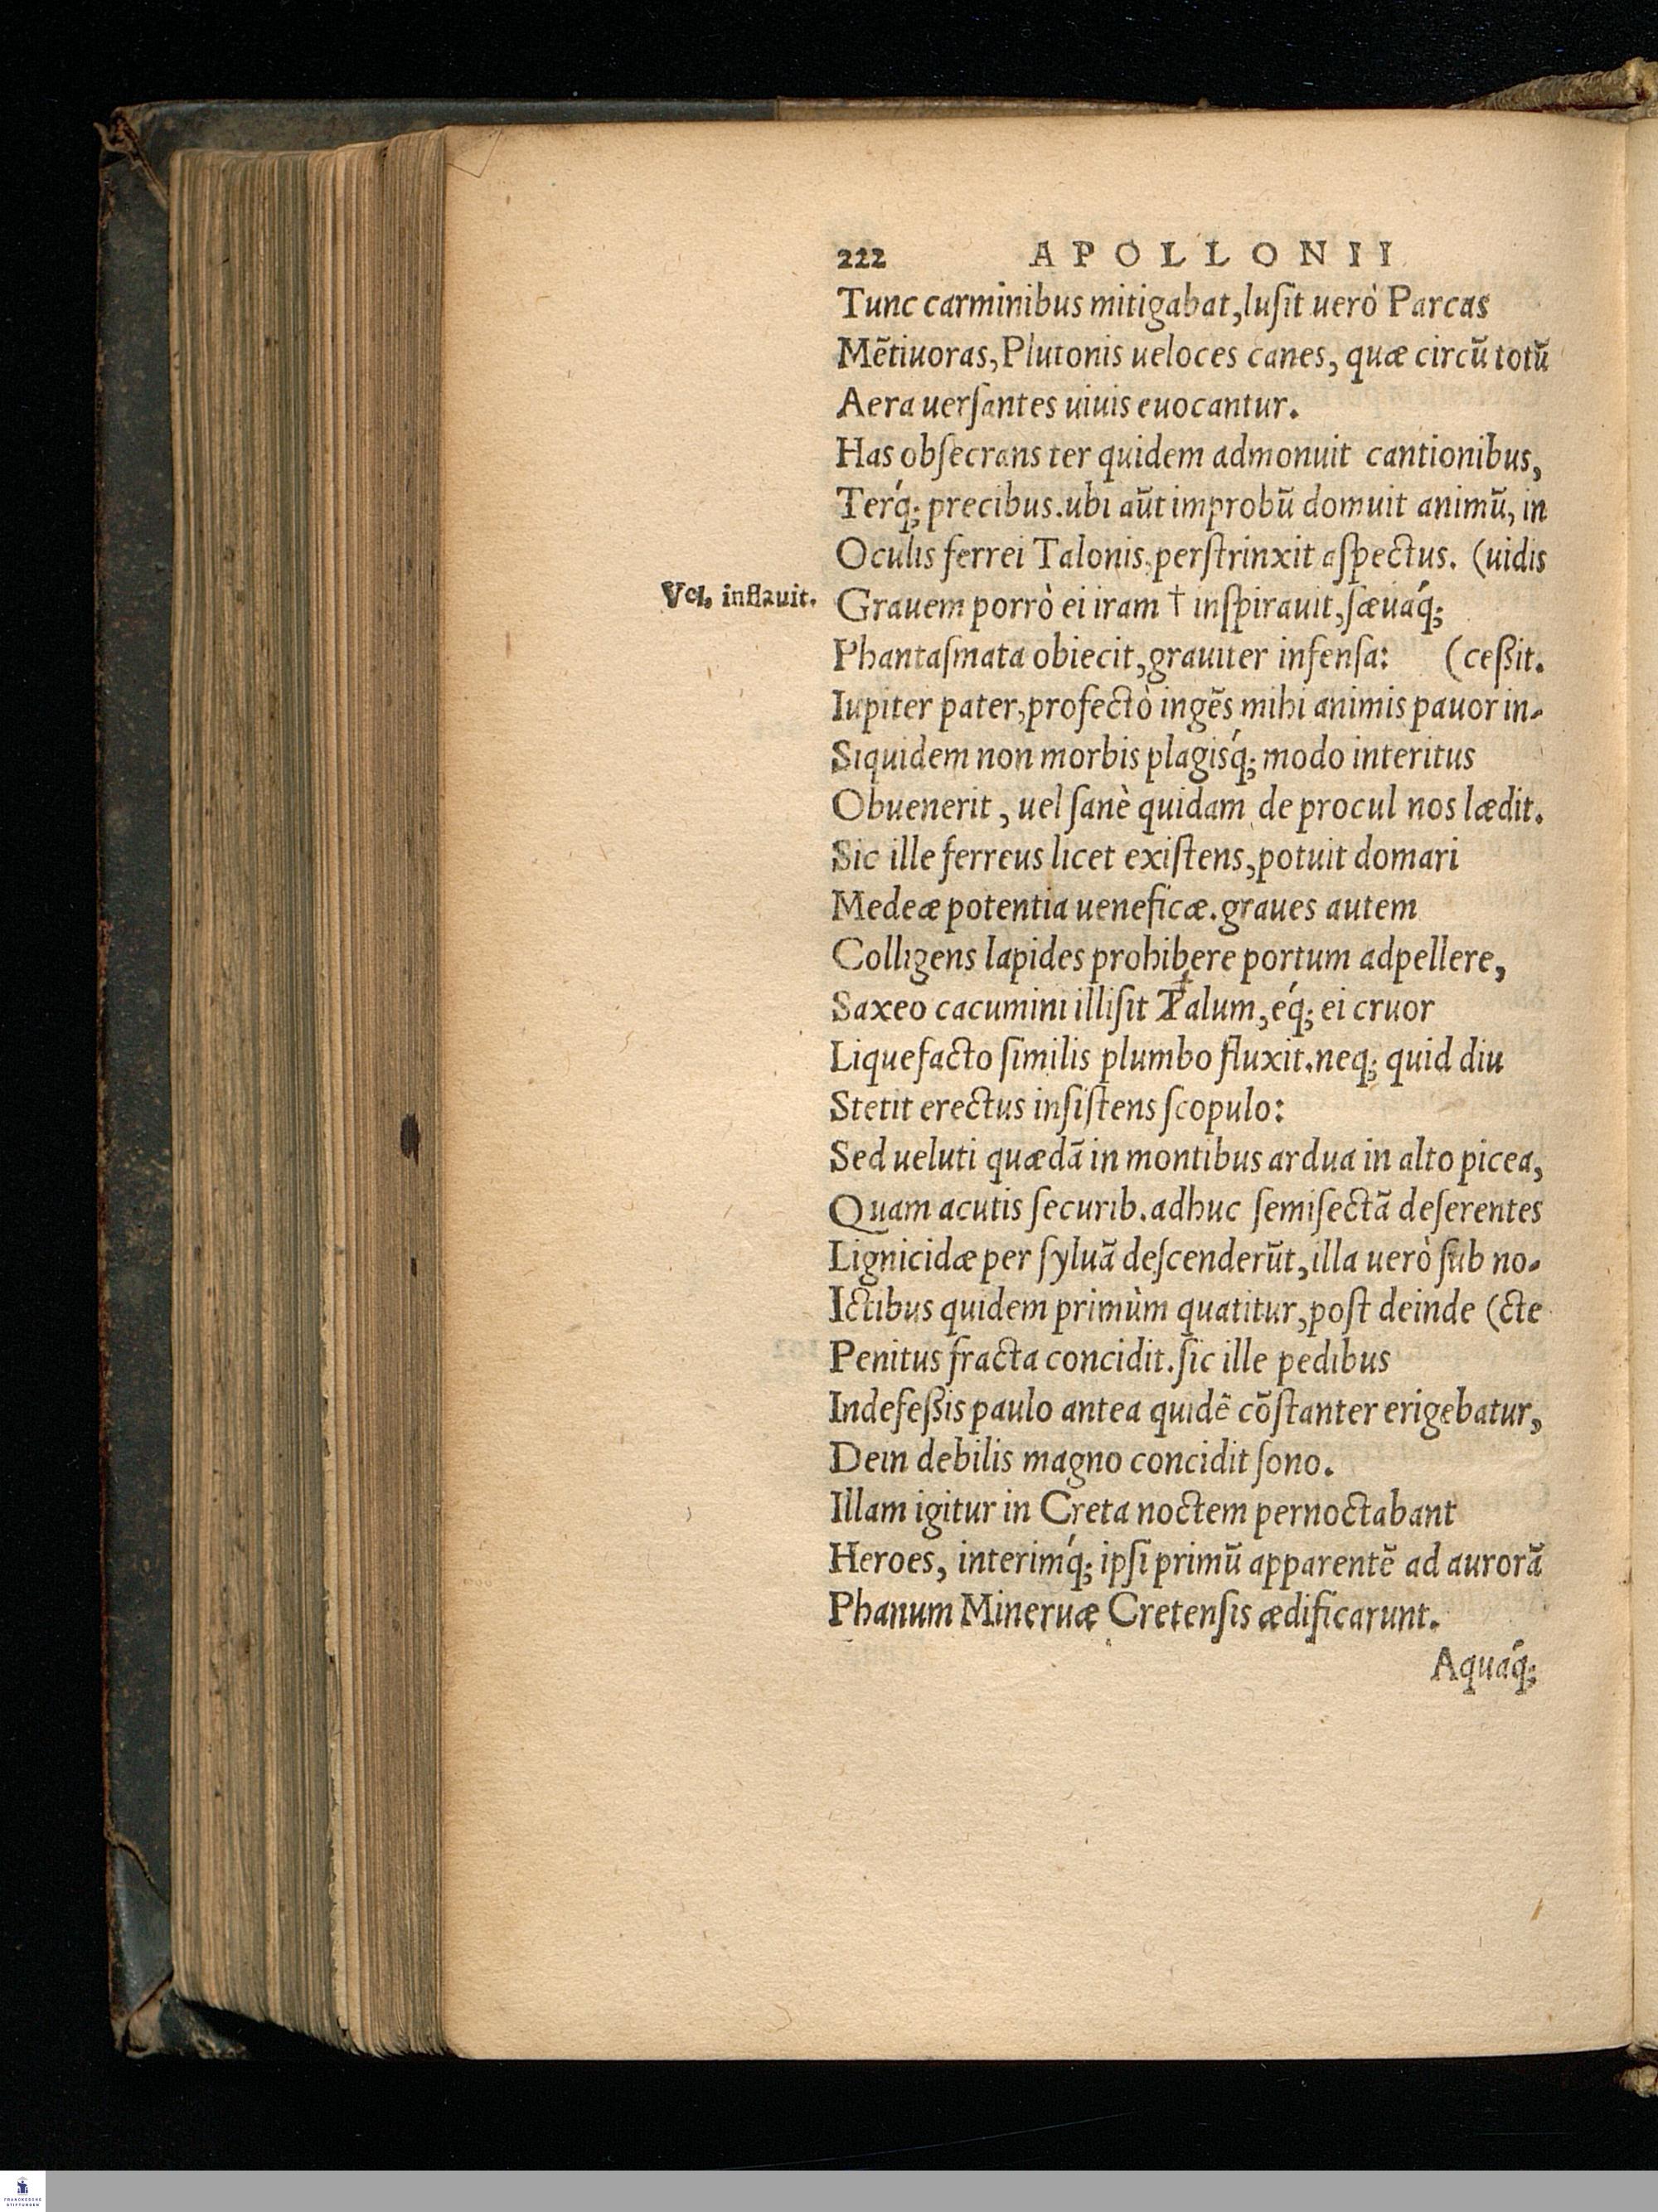 222 APOLLONII
Tunc carminibus mitigabat,luſit uerò Parcas
Mẽtiuoras,Plutonis ueloces canes, quæ circũ totũ
Aera uerſantes uiuis euocantur.
Has obſecrans ter quidem admonuit cantionibus,
Terq́; precibus.ubi aũt improbũ domuit animũ, in
Oculis ferrei Talonis perſtrinxit aſpectus. (uidis
Vel, inflauit.
Grauem porrò ei iram † inſpirauit,ſæuaq́;
Phantaſmata obiecit,grauiter infenſa: (ceßit.
Iupiter pater,profectò ingẽs mihi animis pauor in-
Siquidem non morbis plagisq́; modo interitus
Obuenerit, uel ſanè quidam de procul nos lædit.
Sic ille ferreus licet exiſtens,potuit domari
Medeæ potentia ueneficæ.graues autem
Colligens lapides prohibere portum adpellere,
Saxeo cacumini illiſit Talum,eq́; ei cruor
Liquefacto ſimilis plumbo fluxit.neq; quid diu
Stetit erectus inſiſtens ſcopulo:
Sed ueluti quædã in montibus ardua in alto picea,
Quam acutis ſecurib.adhuc ſemiſectã deſerentes
Lignicidæ per ſyluã deſcenderũt,illa uerò ſub no-
Ictibus quidem primùm quatitur,poſt deinde (cte
Penitus fracta concidit.ſic ille pedibus
Indefeßis paulo antea quidẽ cõſtanter erigebatur,
Dein debilis magno concidit ſono.
Illam igitur in Creta noctem pernoctabant
Heroes, interimq́; ipſi primũ apparentẽ ad aurorã
Phanum Mineruæ Cretenſis ædificarunt.
Aquaq́;
FRANCKESCHE
STIFTUNGEN